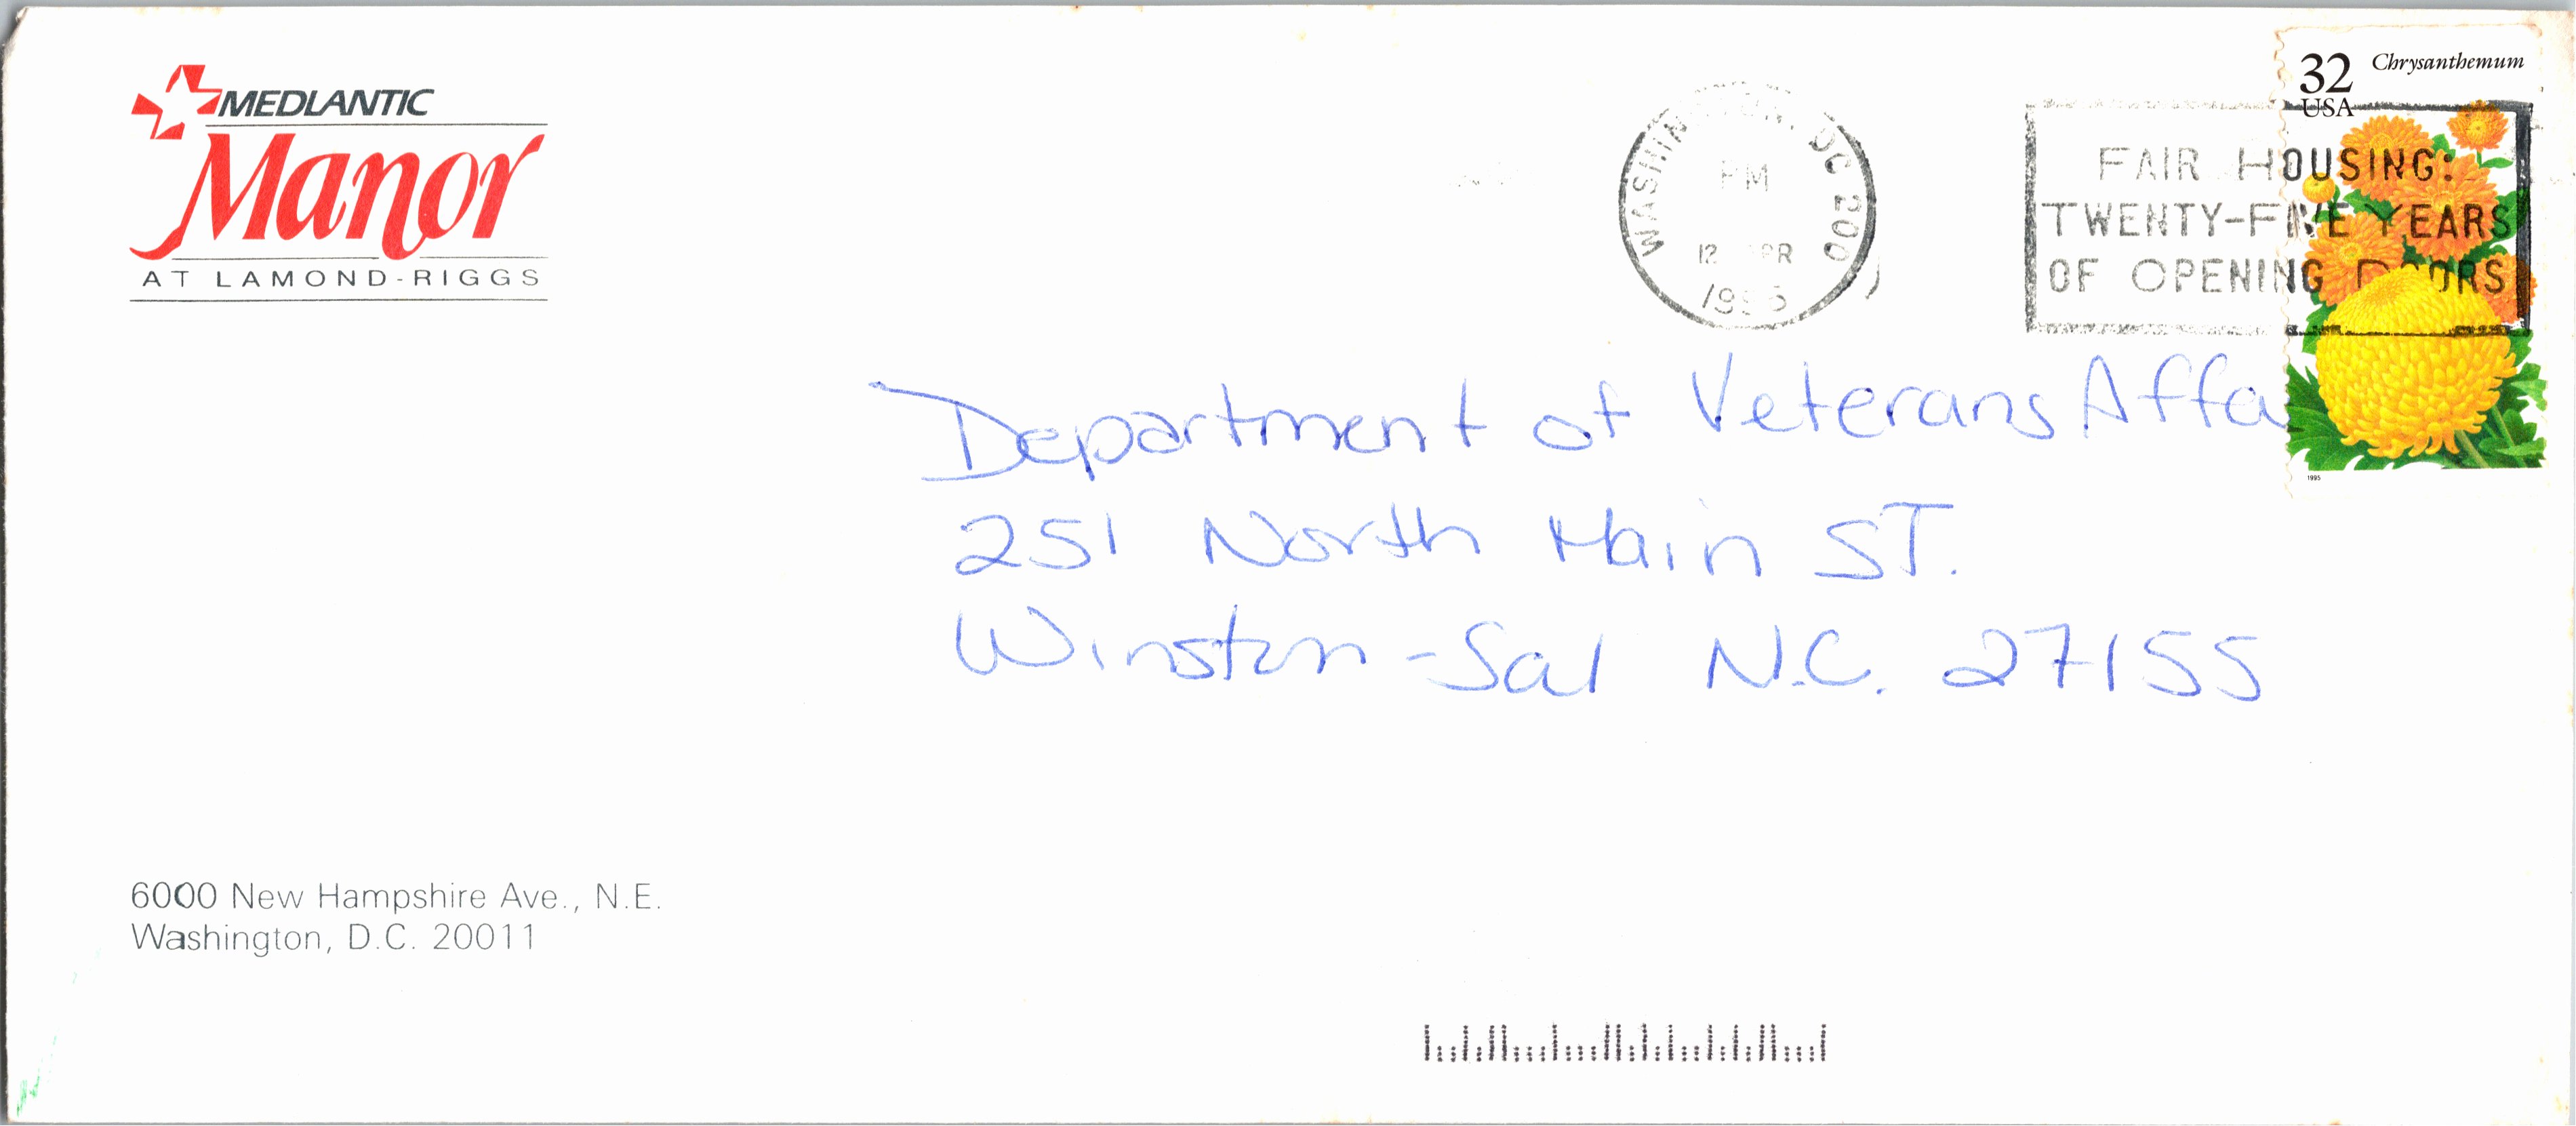 MEDLANTIC
Manor
AT LAMOND-RIGGS
WASHINGTON, DC 200
PM
12 APR
FAIR HOUSING:
TWENTY-FIVE YEARS
OF OPENING DOORS
32 Chrysanthemum
USA
1995
Department of Veterans Affa
251 North Main ST.
Winston-Sal N.C. 27155
6000 New Hampshire Ave., N.E.
Washington, D.C. 20011